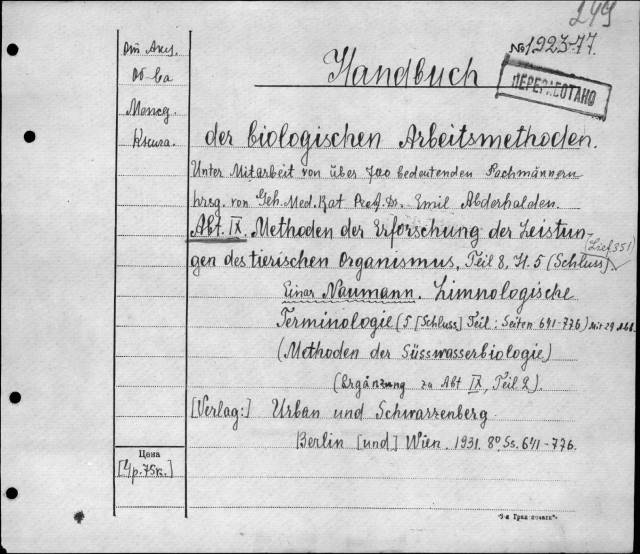 249
№ 1923-77.
ПЕРЕРАБОТАНО
Handbuch
der biologischen Arbeitsmethoden.
Unter Mitarbeit von über 700 bedeutenden Fachmännern
hrsg. von Geh. Med. Rat Prof. Dr. Emil Abderhalden.
Abt. IX. Methoden der Erforschung der Leistun-
(Lief 351)
gen des tierischen Organismus, Teil 8, H. 5 (Schluss)
Einar Naumann. Limnologische
Terminologie (5 [Schluss] Teil: Seiten 641-776) Mit 29 Abb.
(Methoden der Süsswasserbiologie)
(Ergänzung zu Abt IX, Teil 2).
[Verlag:] Urban und Schwarzenberg
Berlin [und] Wien. 1931. 8° Ss. 641-776.
От Акц.
Об-ва
Межд.
Книга.
Цена
[4р.75к.]